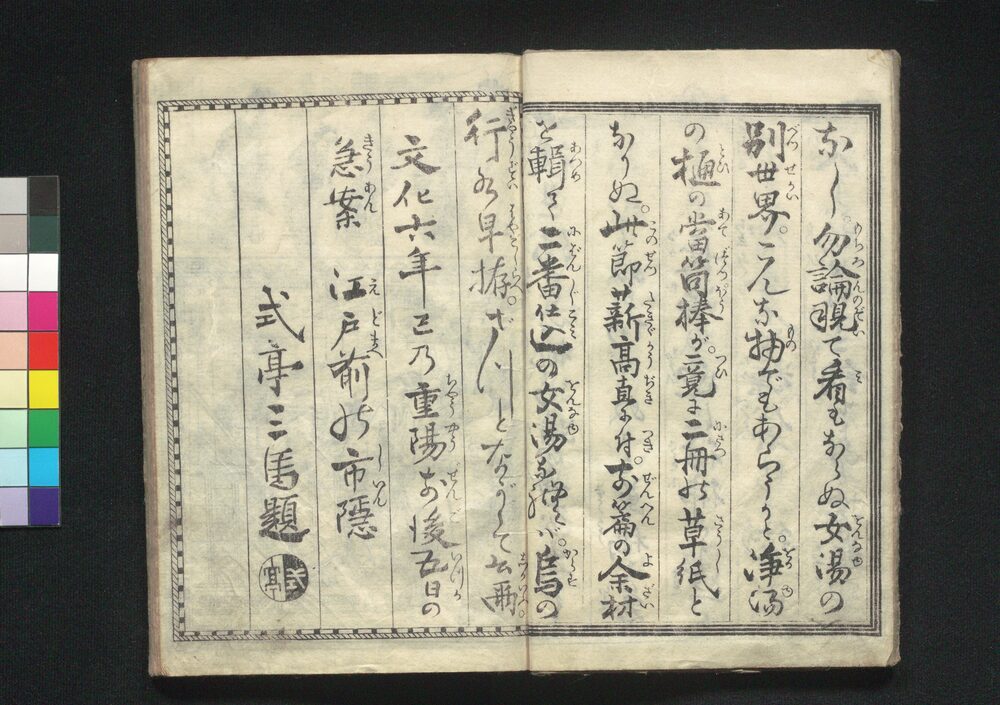 なし。勿論覗て看もおらぬ女湯の
別世界。こんな物でもあらうかと。浄湯
の樋の當筒棒が。竟に二冊の草紙と
なりぬ。此節薪高直に付。前篇の余材
を輯て二番仕込の女湯を
烏の
行水早拵。ざつとながして云爾
文化六年己巳重陽前後五日の
急案 江戸前の市隠
式亭三馬題
式亭